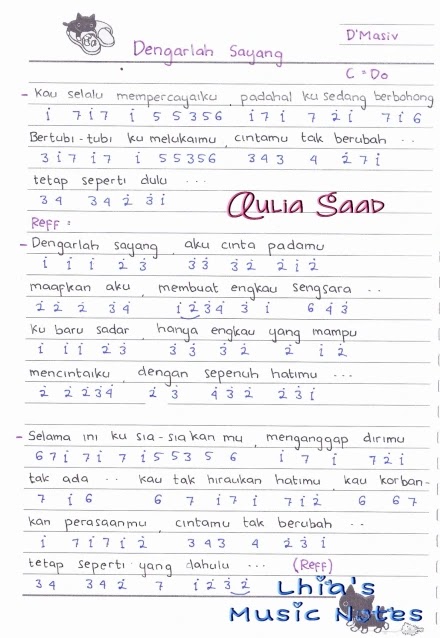 D'Masiv
Dengarlah Sayang
C = Do
- Kau selalu mempercayaiku, padahal ku sedang berbohong
i 7 i 7 i 5 5 3 5 6 i 7 i 7 2̇ i 7 i 6
Bertubi-tubi ku melukaimu, cintamu tak berubah ..
3 i 7 i 7 i 5 5 3 5 6 3 4 3 4 2̇ 7 i
tetap seperti dulu ...
3 4 3 4 2̇ 3̇ i
Aulia Saad
Reff :
- Dengarlah sayang, aku cinta padamu
i i i 2̇ 3̇ 3̇ 3̇ 3̇ 2̇ 2̇ i 2̇
maafkan aku, membuat engkau sengsara ..
2̇ 2̇ 2̇ 3̇ 4̇ i 2̇ 3̇ 4̇ 3̇ i 6 4̇ 3̇
ku baru sadar, hanya engkau yang mampu
i i i 2̇ 3̇ 3̇ 3̇ 3̇ 2̇ 2̇ i 2̇
mencintaiku, dengan sepenuh hatimu ...
2̇ 2̇ 2̇ 3̇ 4̇ 2̇ 3̇ 4̇ 3̇ 2̇ 2̇ 3̇ i
- Selama ini ku sia-siakan mu, menganggap dirimu
6 7 i 7 i 7 i 5 5 3 5 6 i 7 i 7 2̇ i
tak ada .. kau tak hiraukan hatimu, kau korban-
7 i 6 6 7 i 7 i 7 i 2̇ 6 6 7
kan perasaanmu, cintamu tak berubah ..
i 7 i 7 i 2̇ 3 4 3 4 2̇ 3̇ i
tetap seperti yang dahulu ... (Reff)
3 4 3 4 2̇ 7 i 2̇ 3̇ 2̇
Lhia's
Music Notes